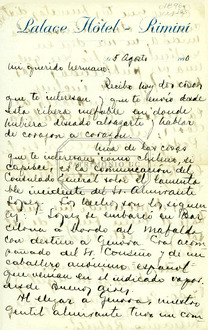 Palace Hôtel - Rimini
5 Agosto
Mi querido hermano:
Recibo hoy dos cosas
que te interesan, que te envío desde
esta ribera donde
hubiera deseado abrazarte y hablar
de corazón a corazón.
Una de las cosas
que te interesan como chileno,
es la comunicación del
Consulado Central sobre el lamenta-
ble incidente del Sr. Almirante
Lopez. Los hechos son los siguien-
tes: Lopez se embarcó en Bar-
celona a bordo del Mafalda
con destino a Genova iba acom-
pañado del Sr. Cousiño y de un
caballero español
que venían en el indicado vapor
desde Buenos Aires.
Al llegar a Genova, nuestro
gentil almirante tuvo un com